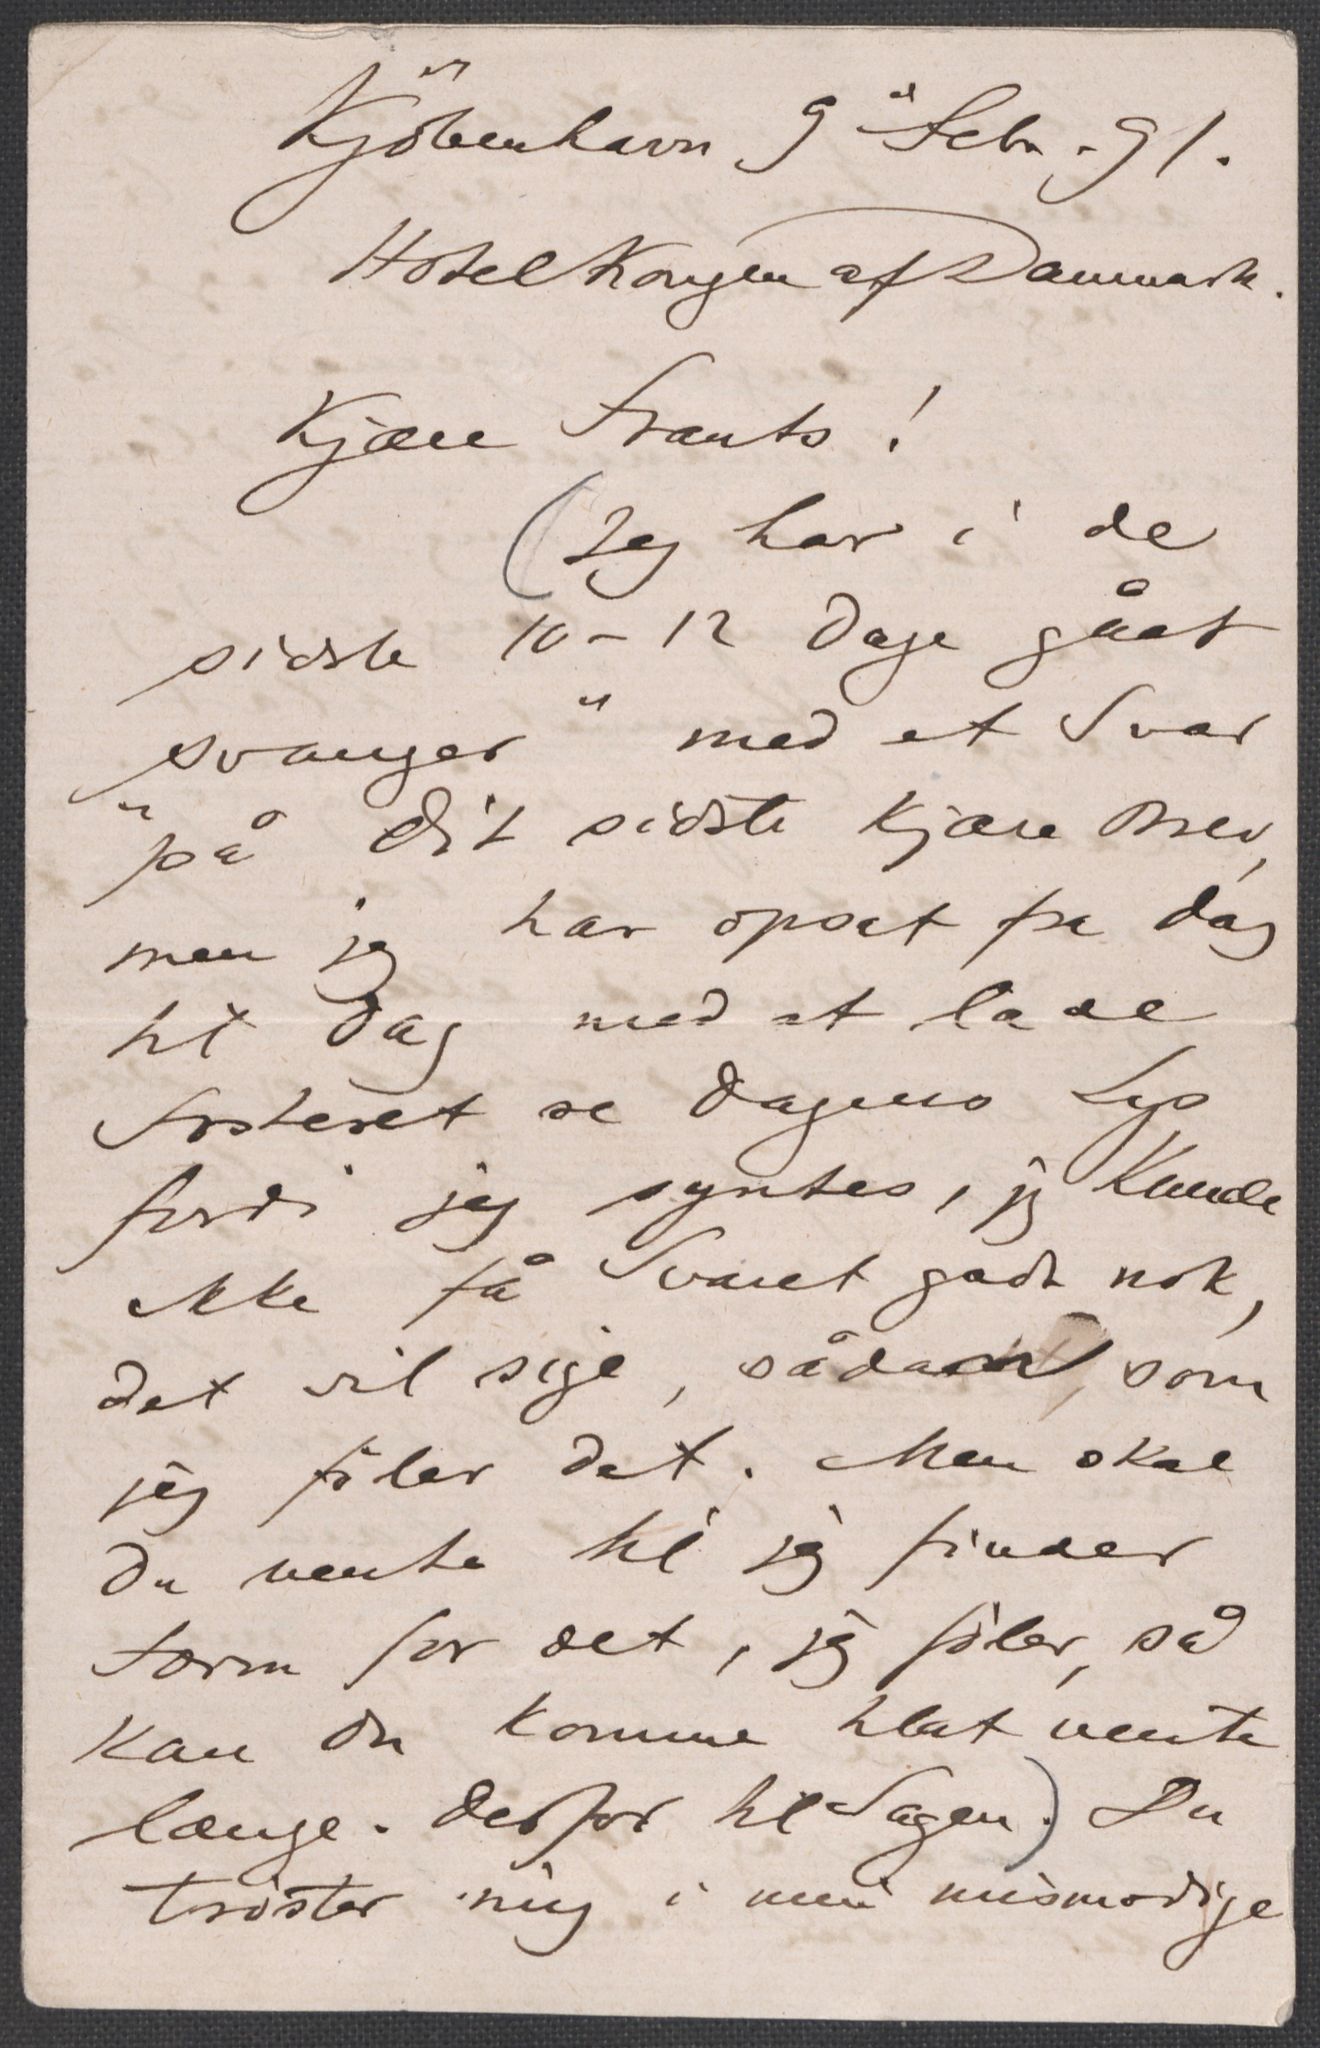 Kjöbenhavn 9 Febr. 91.
Hotel Kongen af Danmark.
Kjære Frants!
(Jeg har i de
sidste 10-12 Dage gået
svanger med et Svar
på dit sidste kjære Brev,
men jeg har opsat fra Dag
til Dag med at lade
Fosteret se Dagens Lys
fordi jeg syntes, jeg kunde
ikke få Svaret godt nok,
det vil sige, sådan, som
jeg föler det. Men skal
du vente til jeg finder
Form for det, jeg föler, så
kan du komme til at vente
længe. Derfor til Sagen.) Du
tröster mig i min mismodige